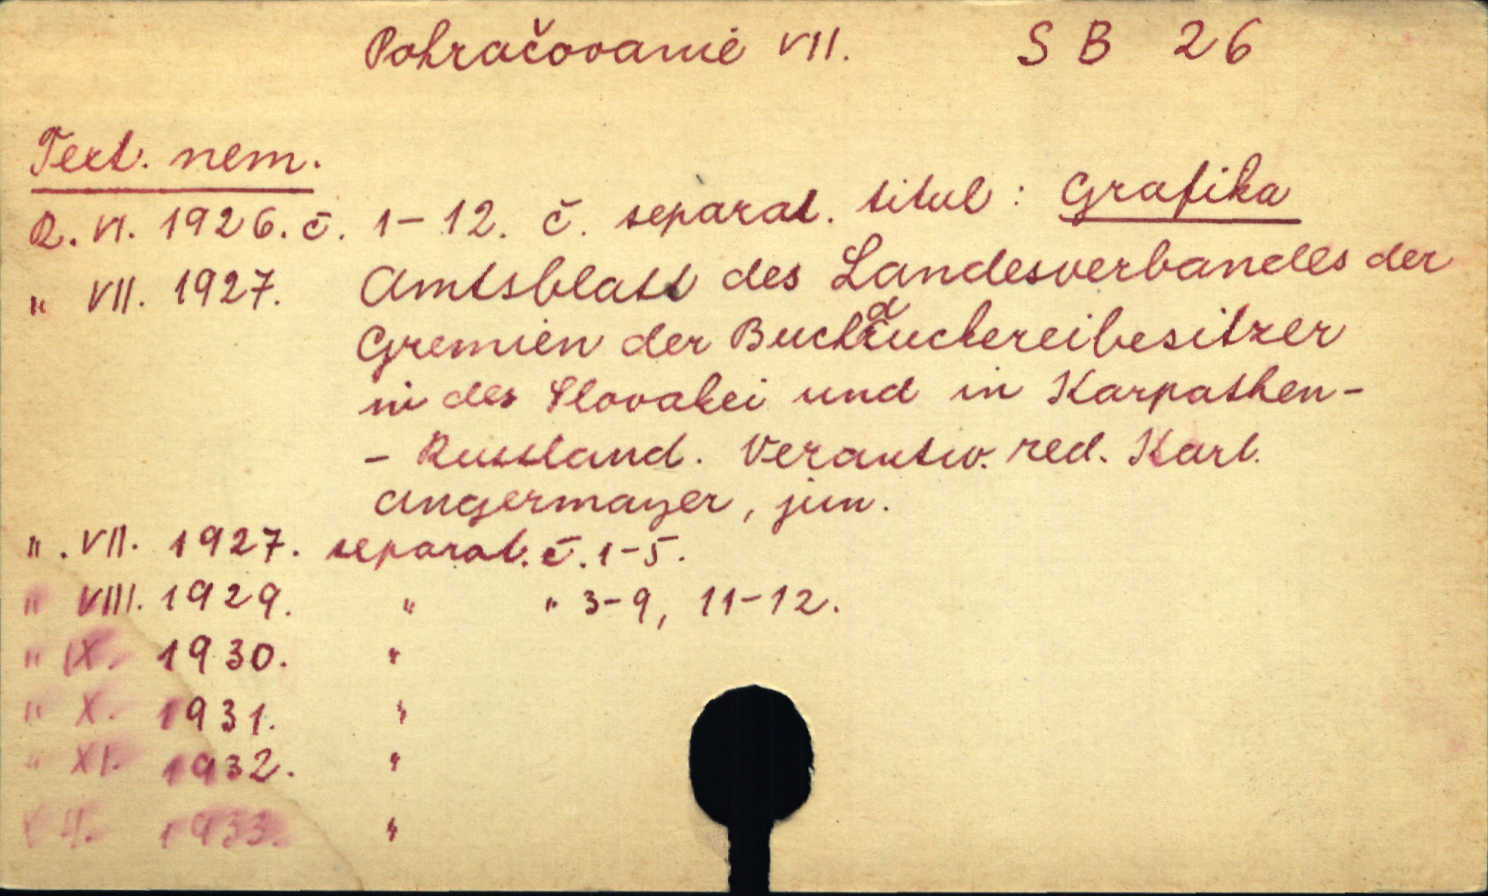 Pokračovanie VII. S B 26
Text. nem.
R. VI. 1926. č. 1-12. č. separat. titul: Grafika
" VII. 1927. Amtsblatt des Landesverbandes der
Gremien der Buchdruckereibesitzer
in der Slovakei und in Karpathen-
- Russland. Verantw. red. Karl
Angermayer, jun.
" . VII. 1927. separat. č. 1-5.
" VIII. 1929. " " 3-9, 11-12.
" IX. 1930. "
" X. 1931. "
" XI. 1932. "
1933. "